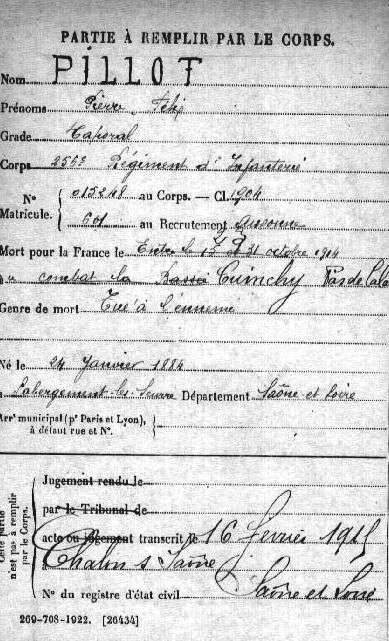 PARTIE À REMPLIR PAR LE CORPS.
Nom PILLOT
Prénoms Pierre
Grade Caporal
Corps 256e Régiment d'Infanterie
No Matricule. { 015248 au Corps. — Cl. 1904
601 au Recrutement Auxonne
Mort pour la France le Entre le 1er & 31 octobre 1914
combat la Cuinchy Pas de Cala
Genre de mort Tué à l'ennemi
Né le 24 Janvier 1884
à Labergement les Seurre Département Saône et Loire
Arrt municipal (pr Paris et Lyon),
à défaut rue et No. {
Cette partie n'est pas à remplir par le Corps. {
Jugement rendu le
par le Tribunal de
acte ou jugement transcrit le 16 février 1915
Chalon s Saône
No du registre d'état civil Saône et Loire
269-708-1922. [26434]